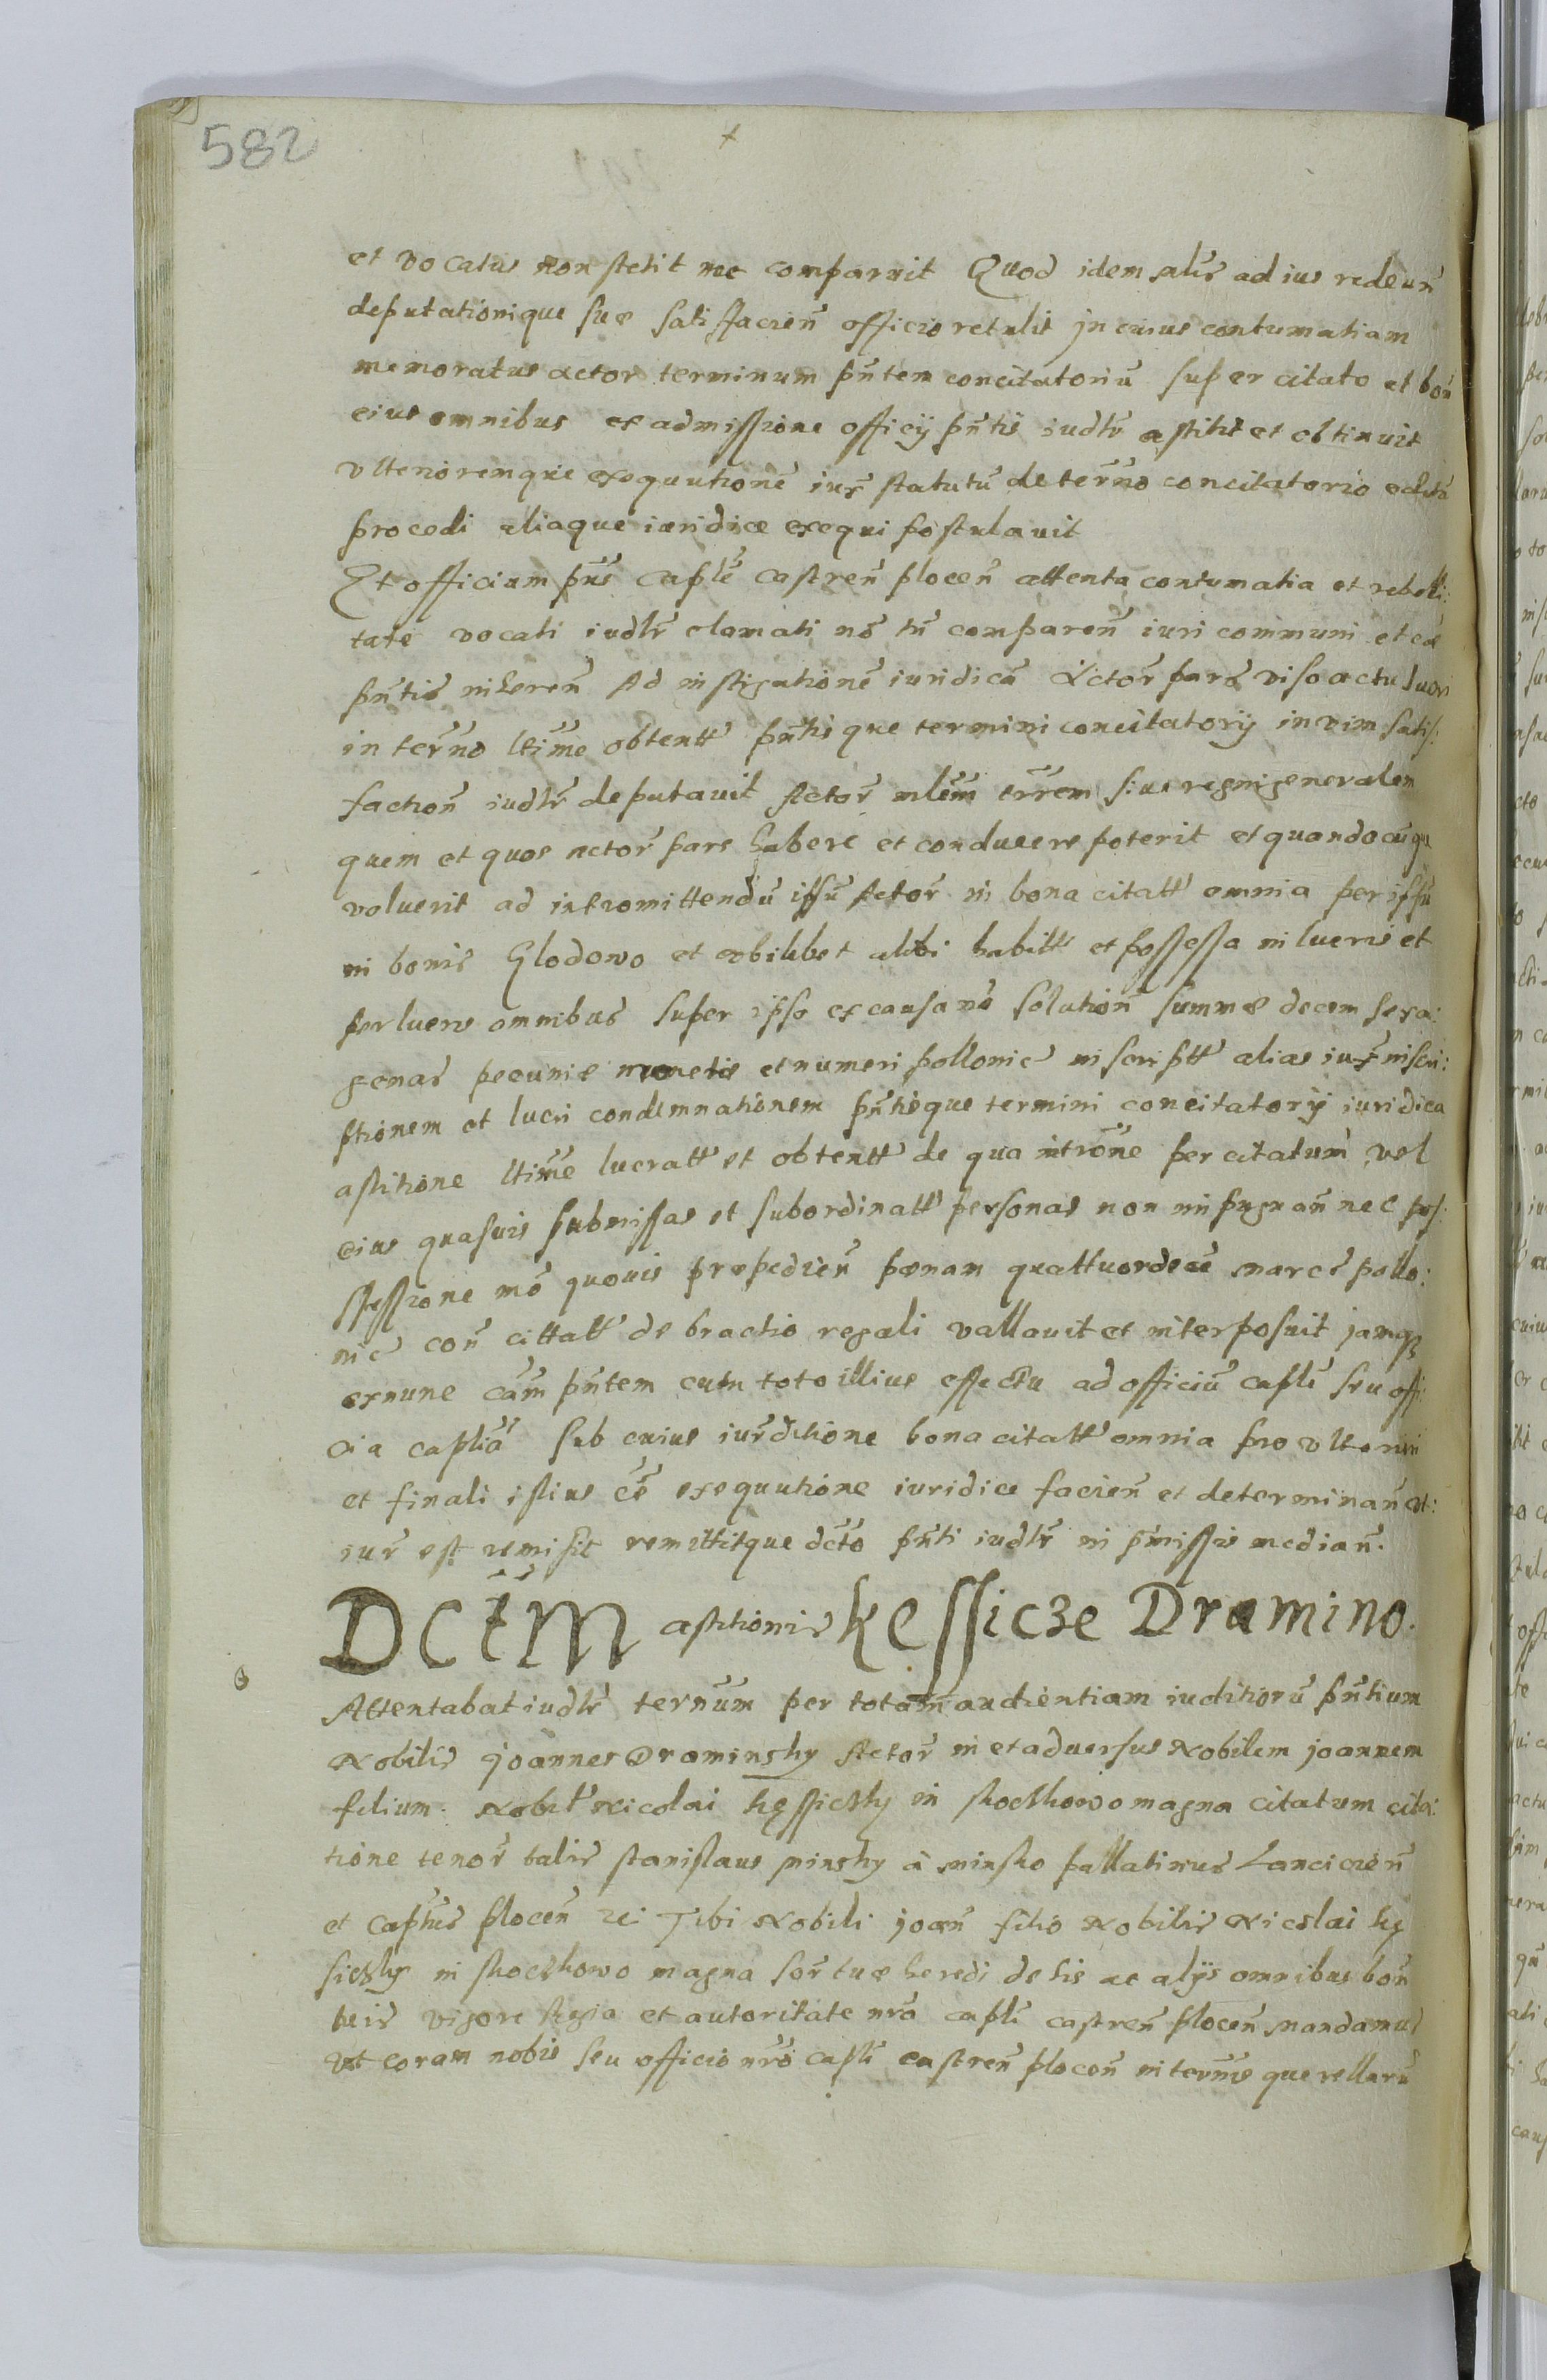 582
et vocatus non stetit nec comparuit Quod idem mlr̃ ad ius redeuñ
deputationique sue satisfacień officio retulit in cuius contumatiam
memoratus actor terminum pñtem concitatoriũ super citato et boñ
eius omnibus ex admissione officij pñtis iudlr̃ astitit et obtinuit
ulterioremque exequutionẽ iur̃ statutũ de ter̃no concitatorio
procedi aliaque iuridice exequi postulavit
Et officium pñs caplẽ castreñ ploceñ attenta contumatia et rebelli:
tate vocati iudlr̃ clamati nõ tñ compareñ iuri communi et
pñtis inhereñ Ad instigationẽ iuridicã Actor̃ pars viso actu lucri
in ter̃no ltime obtentt pñtis que termini concitatorij in vim satis:
faction̄ iudlr̃ deputavit Actor̃ mlem trrem sive regni generalem
quem et quos actor̃ pars habere et conducere poterit et quandocũq
voluerit ad intromittendũ ipsũ Actor̃ in bona citatt omnia per ipsũ
in bonis Glodowo et vbilibet alibi habitt et possessa in lucris et
per lucris omnibus super ipso ex causa nõ solution̄ summe decem sexa:
genar̃ pecunie monete et numeri pollonic̃ inscriptt alias iux̃ inscri:
ptionem et lucri condemnationem pñtisque termini concitatorij iuridica
astitione ltime lucratt et obtentt de qua introne per citatum vel
eius quasvis submissas et subordinatt personas non impugnañ nec pos:
ssessione mõ quovis prepedień penam quattuordecẽ marc̃ pollo:
nic̃ coñ cittatt de brachio regali vallavit et interposuit jamq3
exnunc cãm pñtem cum toto illius effectu ad officiũ caplẽ seu offi:
cia caplia sub cuius iur̃ditione bona citatt omnia pro ulteriori
et finali istius cẽ exequutione iuridice facień et determinañ vt:
iur̃ est remisit remittitque dcto pñti iudlr̃ in p̃missis mediañ.
Dctm astitionis Kessicze Dramino.
Attentabat iudlr̃ ternum per totam audientiam iuditiorũ pñtium
Nobilis Joannes Draminsky Actor̃ in et adversus Nobilem joannem
filium Nobil Nicolai Kęssicky in skoczkowo magna citatum cita:
tione tenor̃ talis stanislaus minsky à minsko pallatinus Lancicień
et capñs ploceñ zc Tibi Nobili joañ filio Nobilis Nicolai Kę
sicky in skoczkowo magna sor̃ tue heredi de his ac alijs omnibus boñ
tuis vigore Regia et autoritate nrã caplẽ castreñ ploceñ mandamus
vt coram nobis seu officio nrõ caplĩ castreñ ploceñ in ternis querellarũ